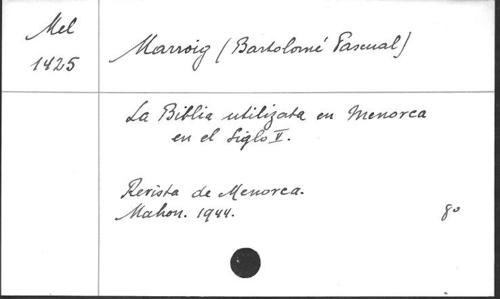 Mel
1425
Marroig (Bartolomé Pascual)
La Biblia utilizata en Menorca
en el Siglo V.
Revista de Menorca.
Mahon. 1944.
8o